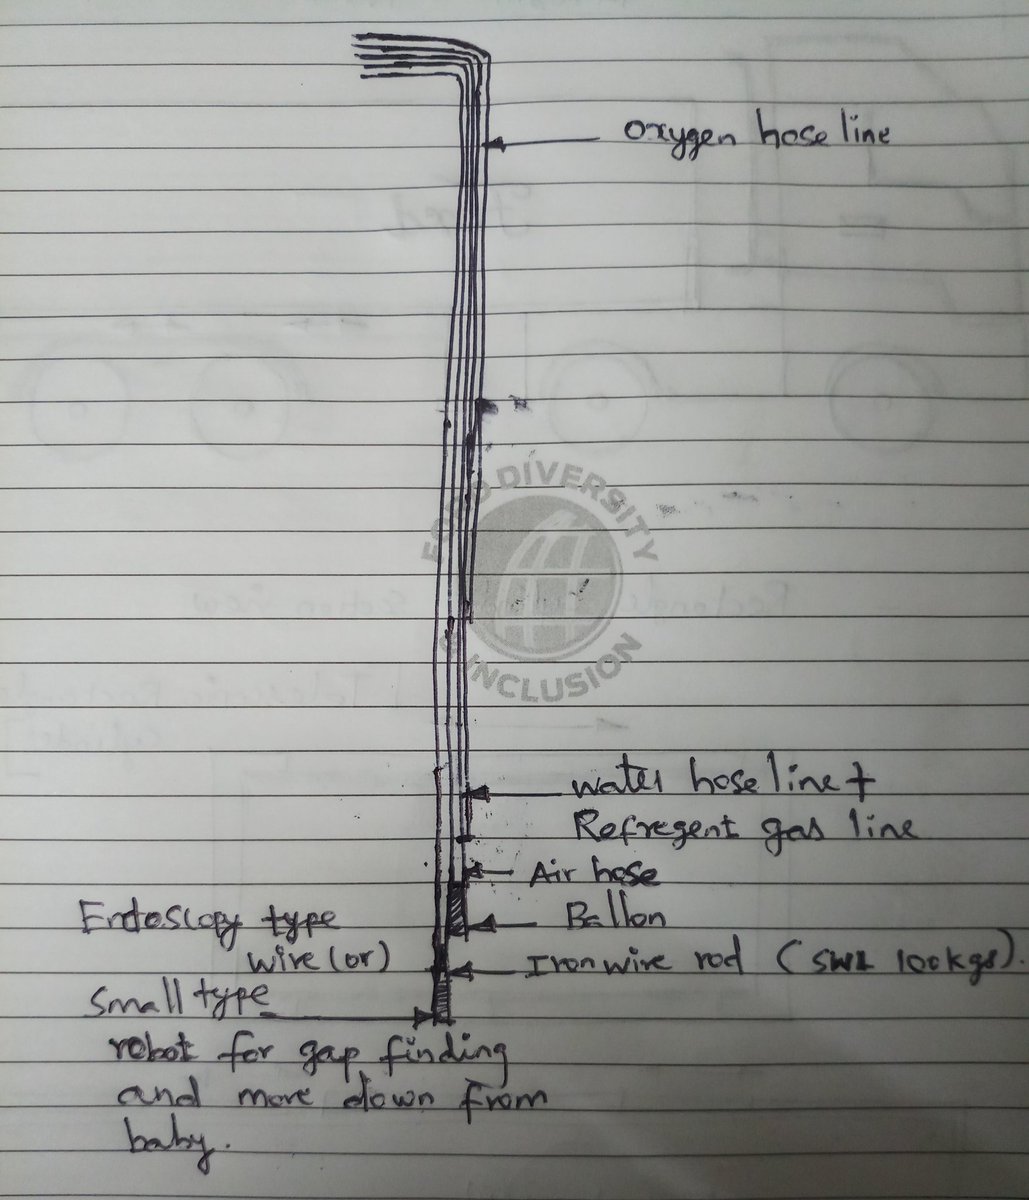 oxygen hose line
water hose line +
Refregent gas line
Air hose
Ballon
Iron wire rod (SWL 100kgs).
Endoscopy type
wire (or)
Small type
robot for gap finding
and more down from
baby.
DIVERSITY
& INCLUSION